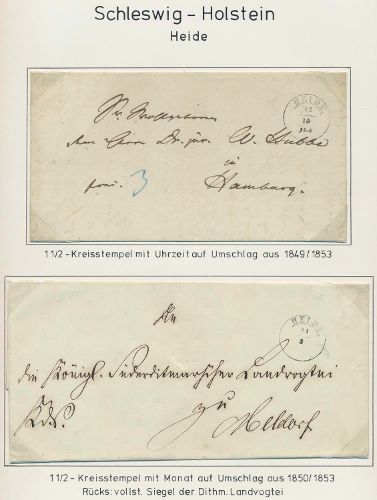 Schleswig - Holstein
Heide
HEIDE
12
10
An Herrn Dr. jur. W. Hübbe
in
Hamburg.
3
11/2 - Kreisstempel mit Uhrzeit auf Umschlag aus 1849/1853
HEIDE
An
die Königl. Süderditmarsischer Landvogtei
zu
Meldorf
11/2 - Kreisstempel mit Monat auf Umschlag aus 1850/1853
Rücks: vollst. Siegel der Dithm. Landvogtei